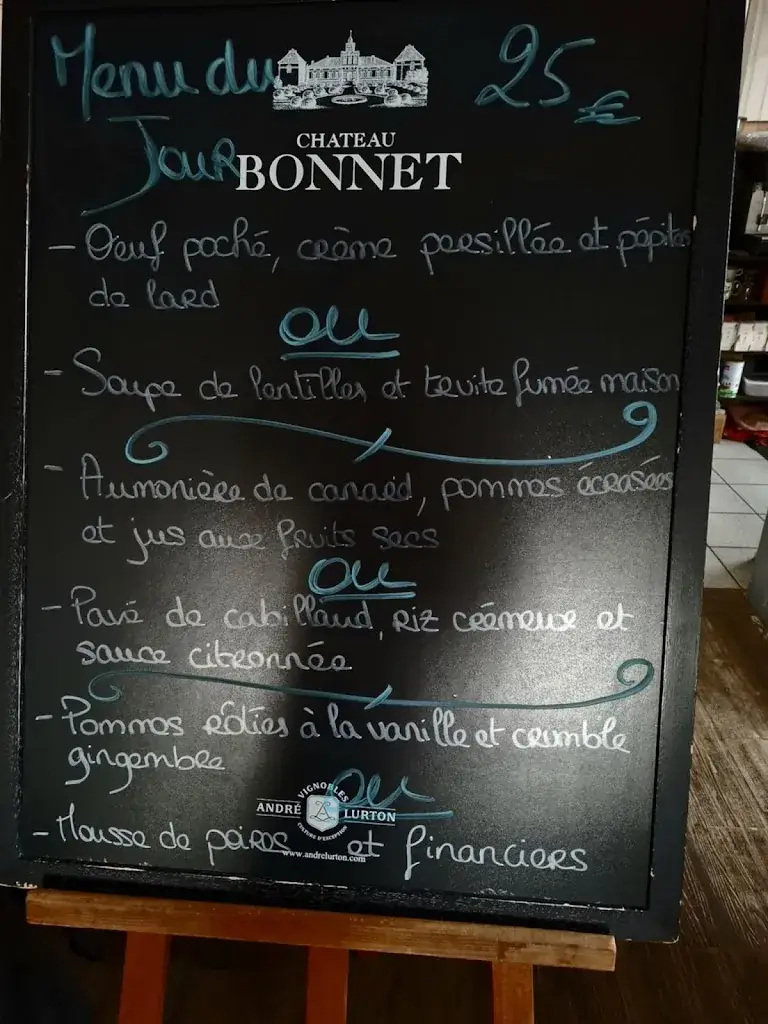 Menu du 25 €
Jour
CHATEAU
BONNET
- Oeuf poché, crème persillée et pépites
de lard
ou
- Soupe de lentilles et truite fumée maison
- Aumonière de canard, pommes écrasées
et jus aux fruits secs
ou
- Pavé de cabillaud, riz crémeux et
sauce citronnée
- Pommes rôties à la vanille et crumble
gingembre
ou
VIGNOBLES
ANDRÉ LURTON
CULTURE D'EXCEPTION
- Mousse de poires et financiers
www.andrelurton.com